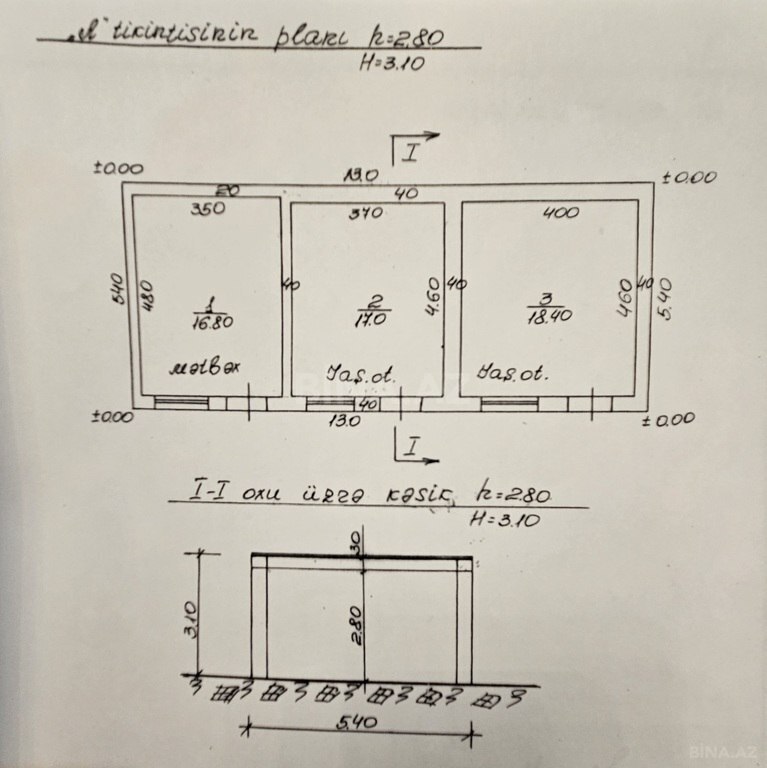 „A" tikintisinin planı h=2.80
H=3.10
I
±0.00 13.0 ±0.00
20 40
350 370 400
540 480 40 4.60 40 460 40 5.40
1 2 3
16.80 17.0 18.40
mətbəx Yaş.ot. Yaş.ot.
BINA.AZ
40
±0.00 13.0 ±0.00
I
I-I oxu üzrə kəsik h=2.80
H=3.10
30
3.10 2.80
5.40
BINA.AZ